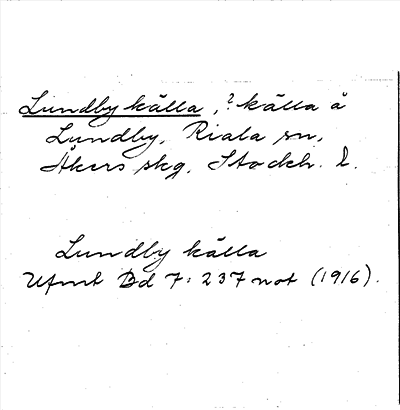 Lundby källa, ? källa å
Lundby, Riala sn,
Åkers skg, Stockh. l.
Lundby källa
Ufmt Bd 7: 237 not (1916).